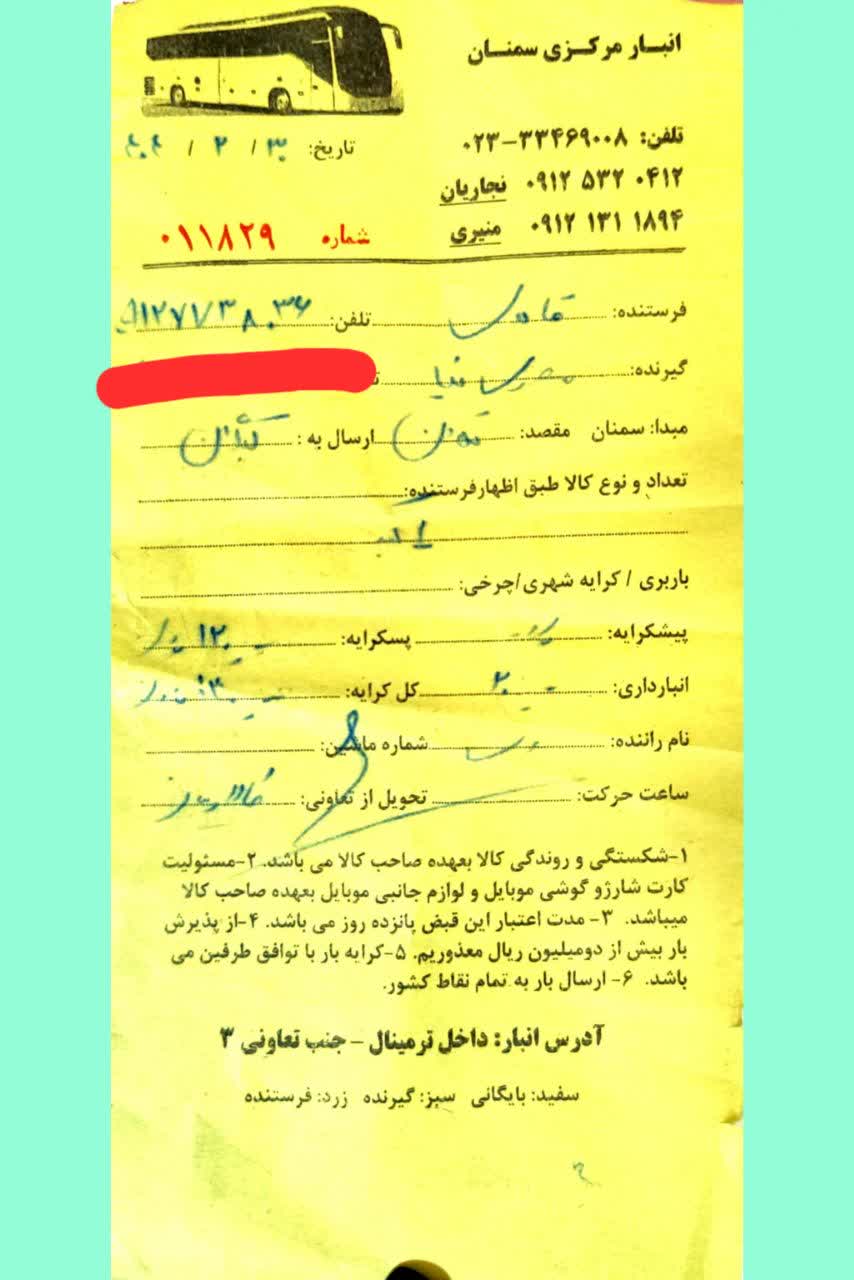 انبار مرکزی سمنان
تلفن: ۳۳۴۶۹۰۰۸-۰۲۳
۰۹۱۲ ۵۳۲ ۰۴۱۲ نجاریان
۰۹۱۲ ۱۳۱ ۱۸۹۴ منیری
تاریخ: ۳۰ / ۲ / ۴۰۴
شماره ۰۱۱۸۲۹
فرستنده: تلفن: ۰۹۱۲۷۱۷۳۸۰۳۶
گیرنده:
مبدا: سمنان مقصد: تهران ارسال به:
تعداد و نوع کالا طبق اظهارفرستنده:
باربری / کرایه شهری/چرخی:
پیشکرایه: پسکرایه: ۱۲۰
انبارداری: ۲۰ کل کرایه:
نام راننده: شماره ماشین:
ساعت حرکت: تحویل از تعاونی:
۱-شکستگی و روندگی کالا بعهده صاحب کالا می باشد. ۲-مسئولیت
کارت شارژو گوشی موبایل و لوازم جانبی موبایل بعهده صاحب کالا
میباشد. ۳- مدت اعتبار این قبض پانزده روز می باشد. ۴-از پذیرش
بار بیش از دومیلیون ریال معذوریم. ۵-کرایه بار با توافق طرفین می
باشد. ۶- ارسال بار به تمام نقاط کشور.
آدرس انبار: داخل ترمینال - جنب تعاونی ۳
سفید: بایگانی سبز: گیرنده زرد: فرستنده